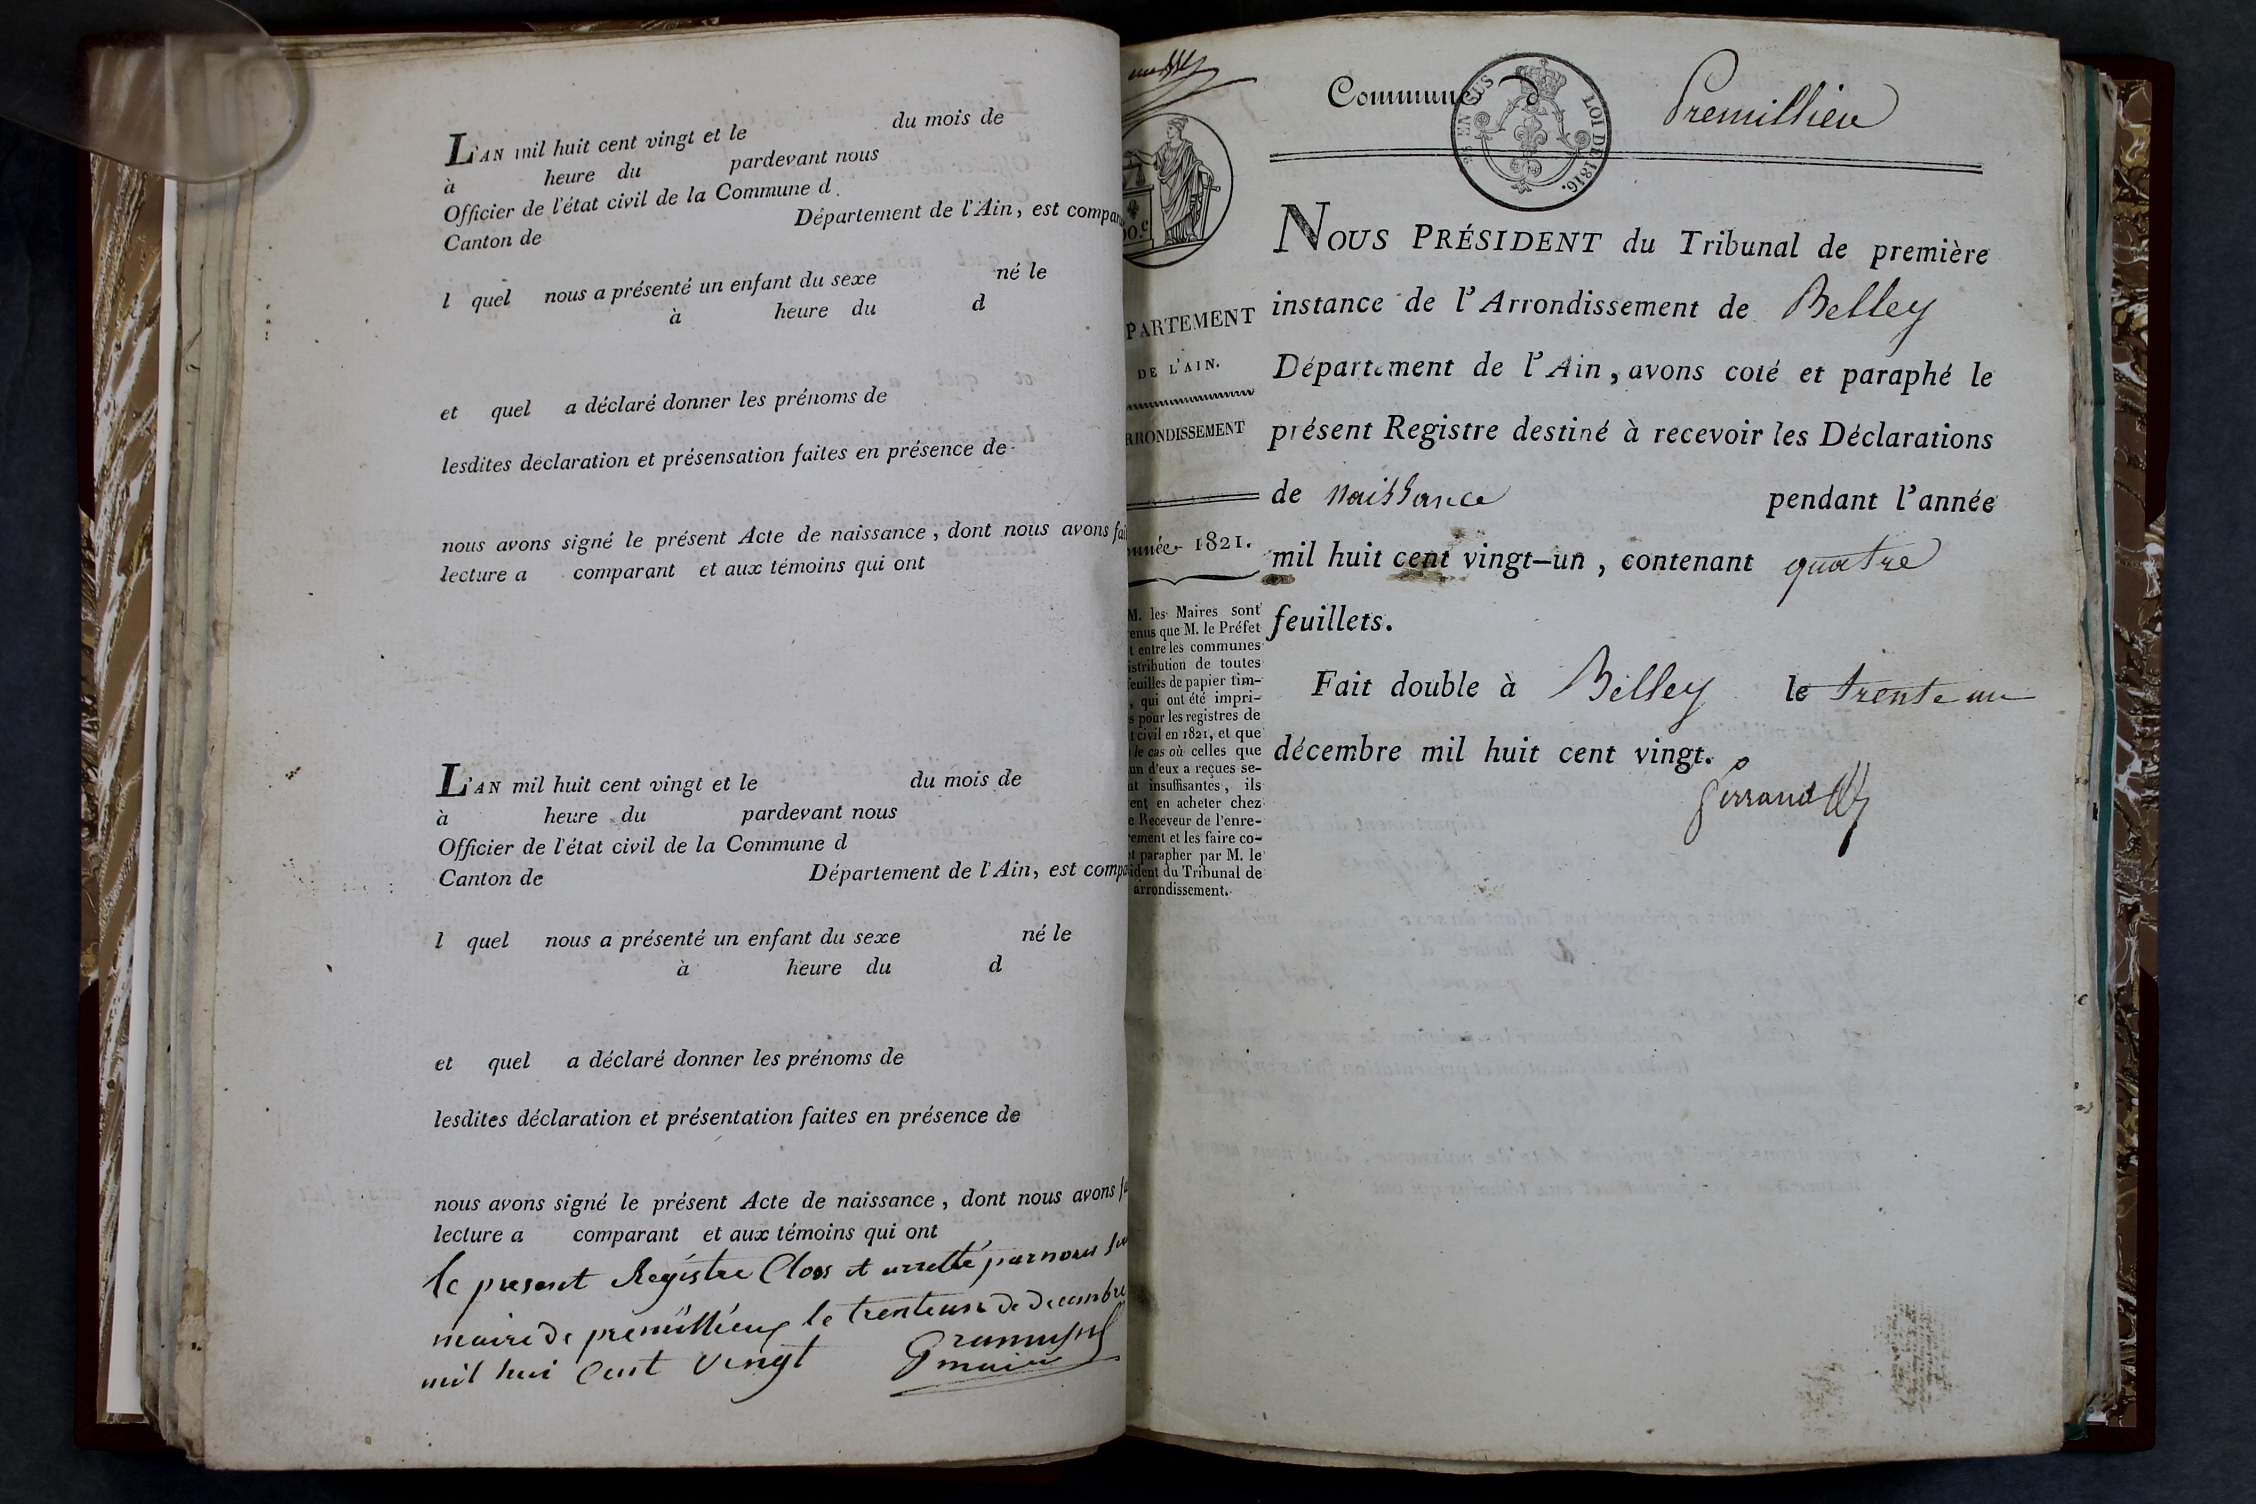 L'AN mil huit cent vingt et le du mois de
à heure du pardevant nous
Officier de l'état civil de la Commune d
Canton de Département de l'Ain, est compar
l quel nous a présenté un enfant du sexe né le
à heure du d
et quel a déclaré donner les prénoms de
lesdites déclaration et présensation faites en présence de
nous avons signé le présent Acte de naissance, dont nous avons fait
lecture a comparant et aux témoins qui ont
L'AN mil huit cent vingt et le du mois de
à heure du pardevant nous
Officier de l'état civil de la Commune d
Canton de Département de l'Ain, est compa
l quel nous a présenté un enfant du sexe né le
à heure du d
et quel a déclaré donner les prénoms de
lesdites déclaration et présentation faites en présence de
nous avons signé le présent Acte de naissance, dont nous avons fa
lecture a comparant et aux témoins qui ont
le present Registre Clos et arretté par nous
maire de premillieu le trenteun de decembre
mil hui Cent vingt
maire
Commune d Premillieu
EN SUS LOI DE 1816.
00.c
PARTEMENT
DE L'AIN.
RRONDISSEMENT
nnée 1821.
M. les Maires sont
enus que M. le Préfet
t entre les communes
istribution de toutes
feuilles de papier tim-
, qui ont été impri-
s pour les registres de
t civil en 1821, et que
le cas où celles que
un d'eux a reçues se-
nt insuffisantes, ils
ent en acheter chez
e Receveur de l'enre-
rement et les faire co-
et parapher par M. le
ident du Tribunal de
arrondissement.
NOUS PRÉSIDENT du Tribunal de première
instance de l'Arrondissement de Belley
Département de l'Ain, avons coté et paraphé le
présent Registre destiné à recevoir les Déclarations
de naissance pendant l'année
mil huit cent vingt-un, contenant quatre
feuillets.
Fait double à Belley le trente un
décembre mil huit cent vingt.